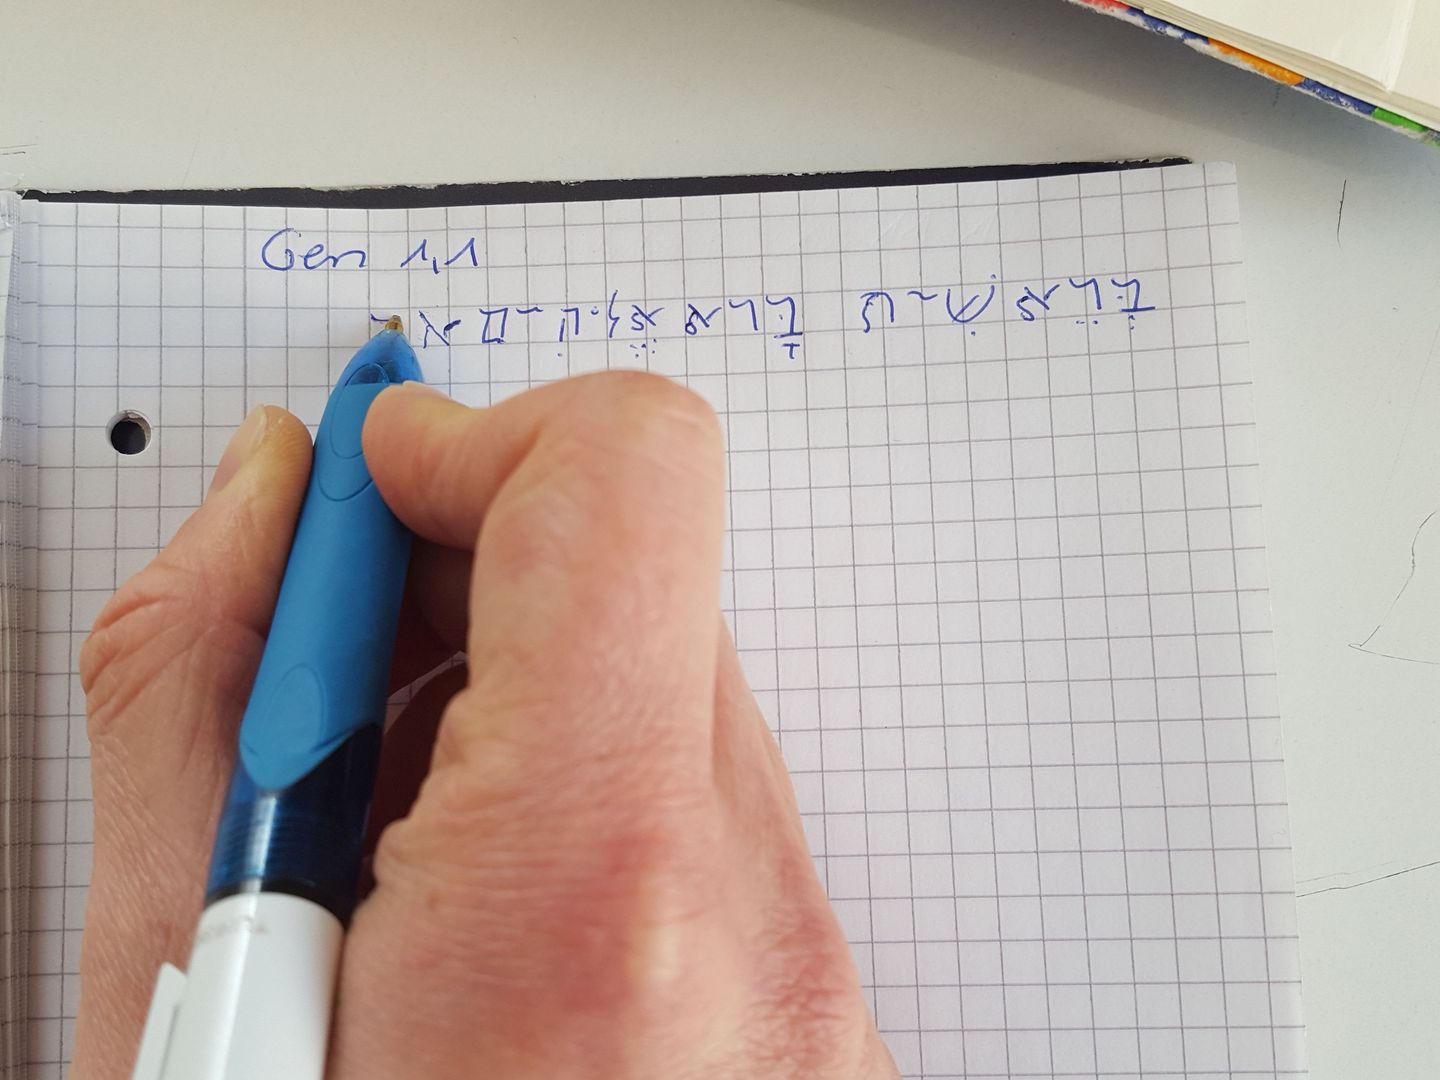 Gen 1,1
בְּרֵאשִׁית בָּרא אֱלֹהִים